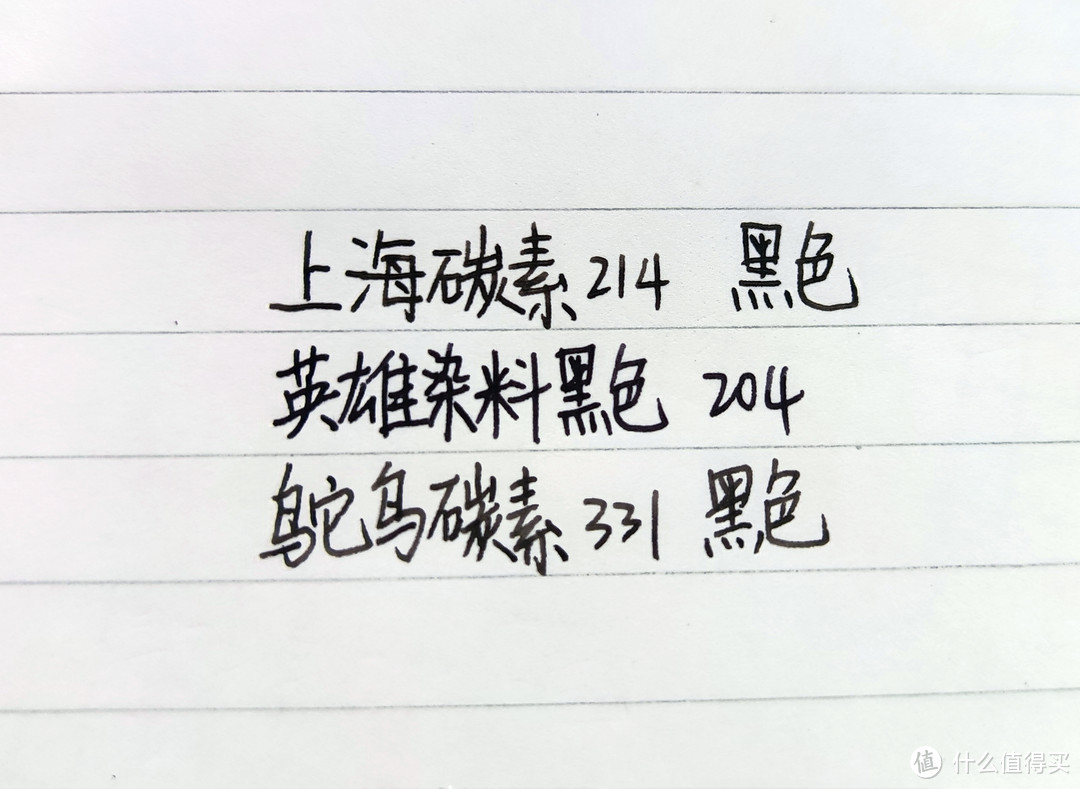 上海碳素214 黑色
英雄染料黑色 204
鸵鸟碳素 331 黑色
值 什么值得买